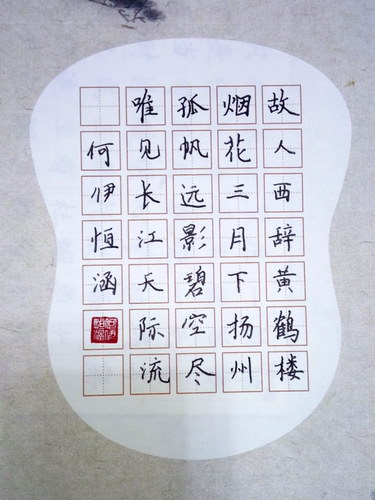 故人西辞黄鹤楼
烟花三月下扬州
孤帆远影碧空尽
唯见长江天际流
何伊恒涵